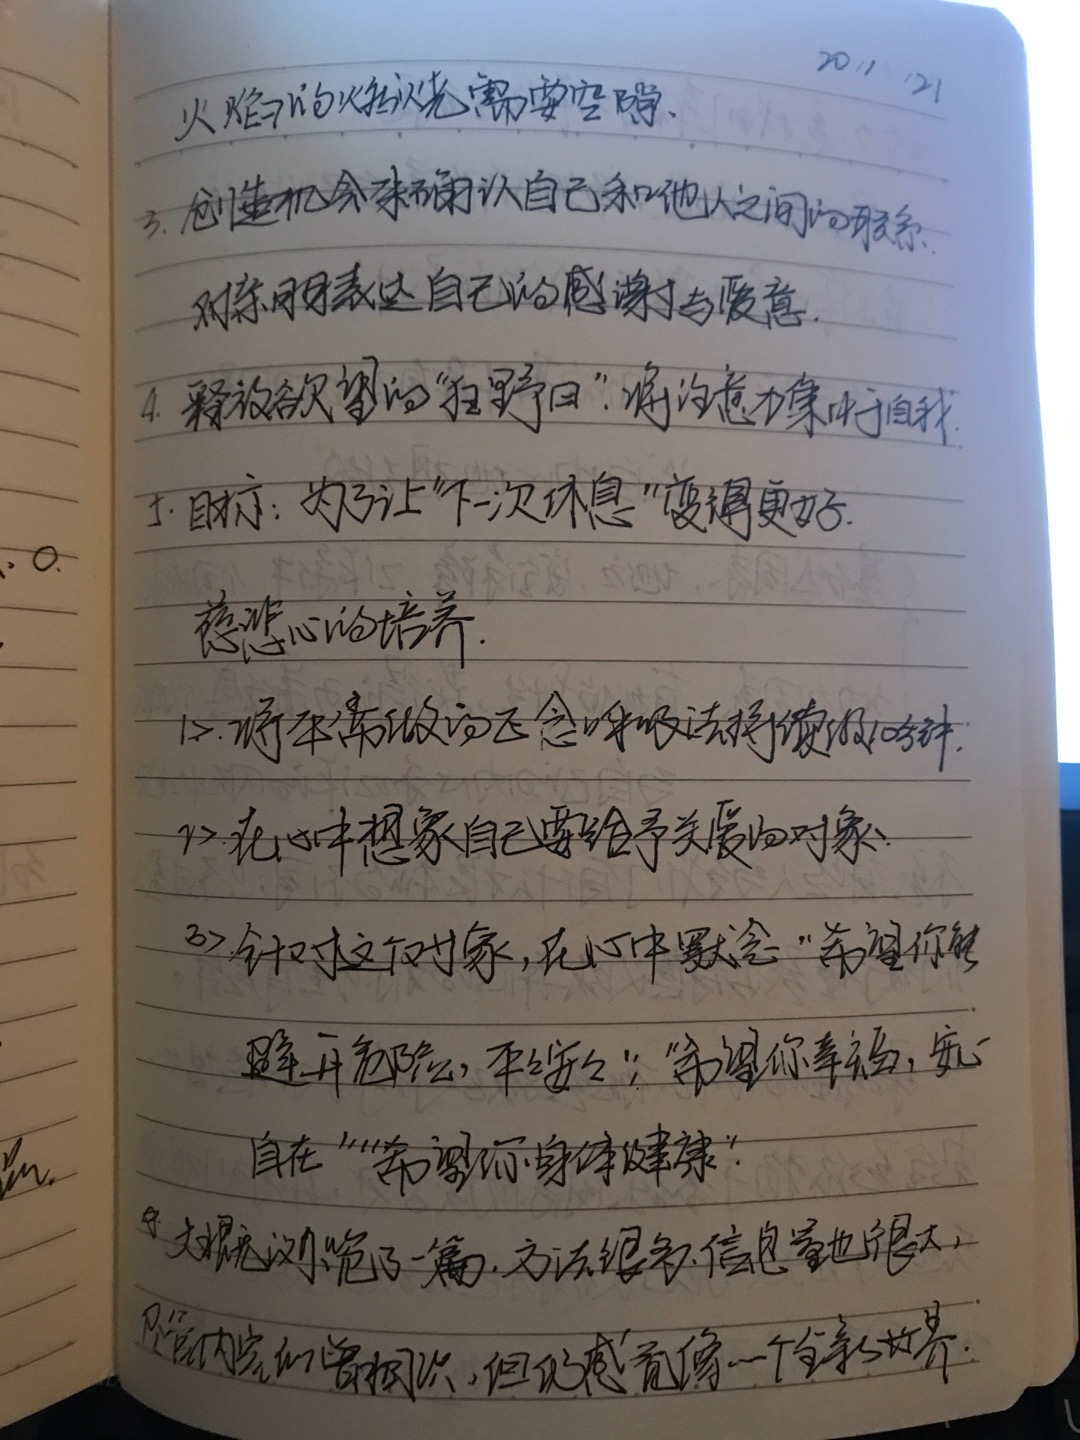 20 11 21
火焰的燃烧需要空隙.
3. 创造机会来确认自己和他人之间的联系.
对亲朋表达自己的感谢与爱意.
4. 释放欲望的“狂野日”. 将注意力集中于自我.
5. 目标: 为了让“下一次休息”变得更好.
慈悲心的培养.
1>. 将平常做的正念呼吸法持续做10分钟.
2>. 在心中想象自己要给予关爱的对象.
3> 针对这个对象, 在心中默念“希望你能
避开危险, 平安”; “希望你幸福, 安心
自在”“希望你身体健康”.
大概浏览了一篇. 方法很多. 信息量也很大,
尽管内容似曾相识, 但仍感觉像一个全新的世界.
0.